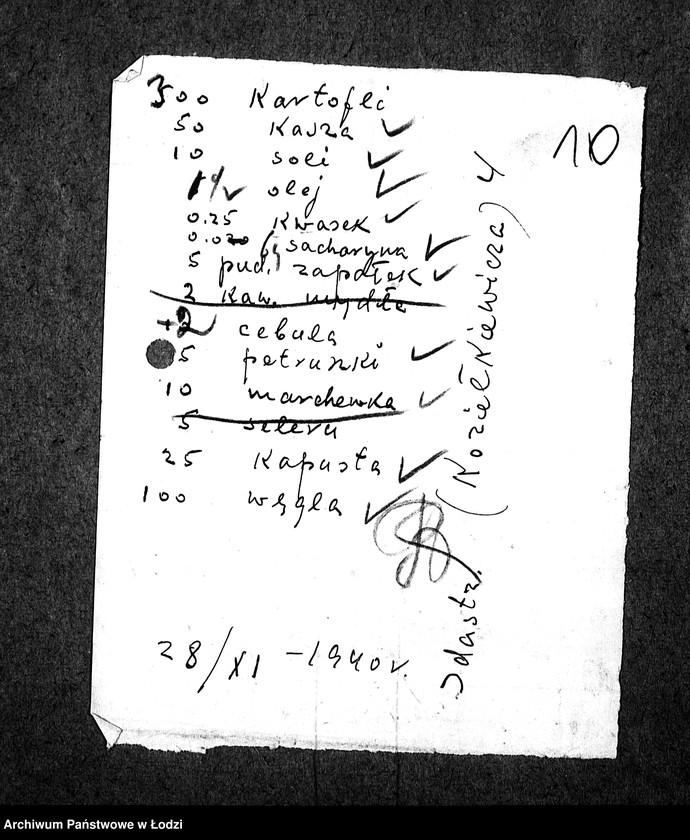 10
300 Kartofli
50 Kasza
10 soli
olej
0.25 Kwasek
0.020 sacharyna
5 pud. zapałek
2 Kaw. mydła
+2 cebula
5 petruszki
10 marchewka
5 selera
25 Kapusta
100 węgla
28/XI - 1940 r.
(Koziełkiewicza) 4
Archiwum Państwowe w Łodzi